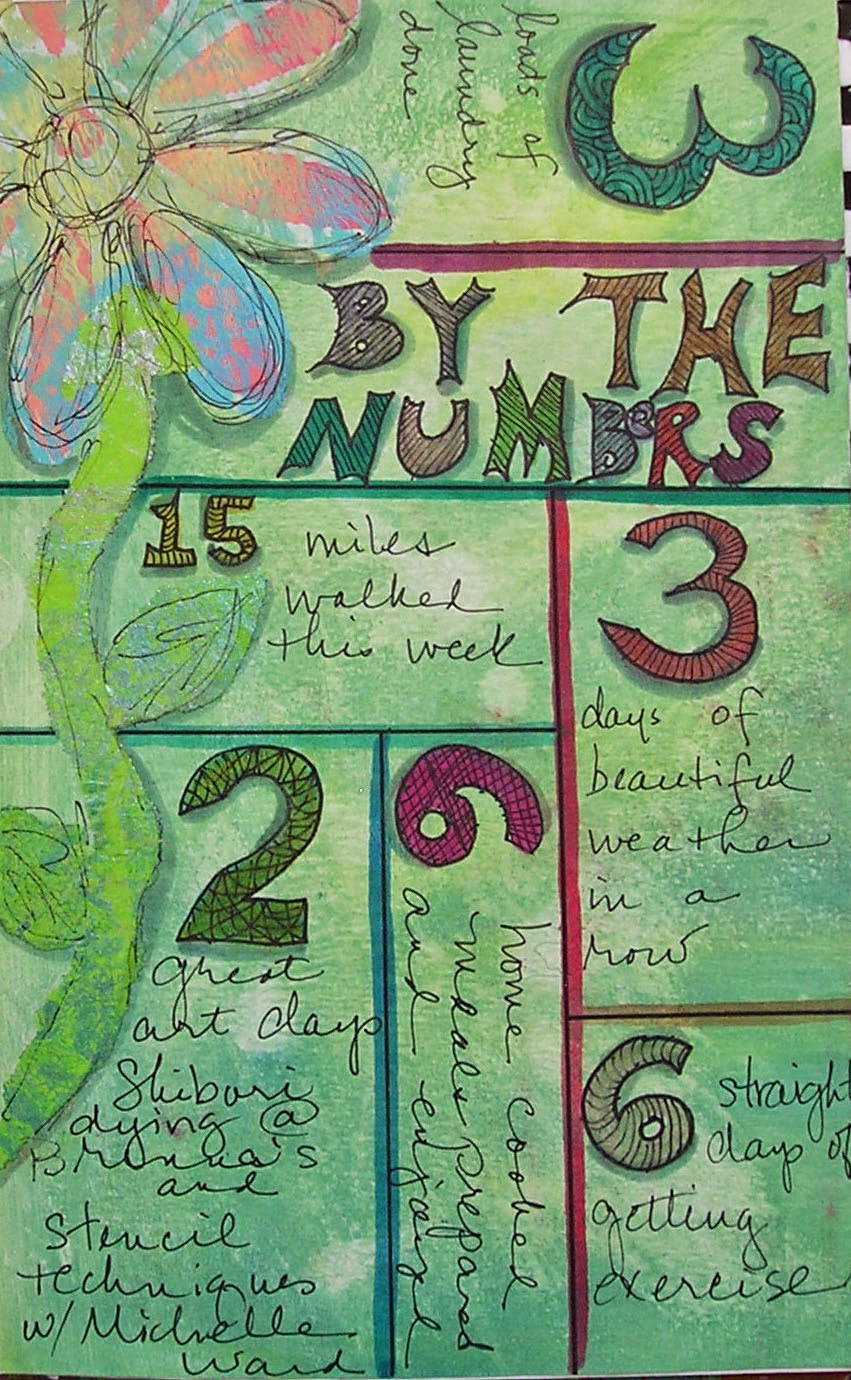 3
loads of
laundry
done
BY THE
NUMBeRS
15 miles
walked
this week
3
days of
beautiful
weather
in a
row
2
great
art days
Shibori
dying @
and
stencil
techniques
w/ Michelle
Ward
6
home cooked
meals prepared
and enjoyed
6 straight
days of
getting
exercise